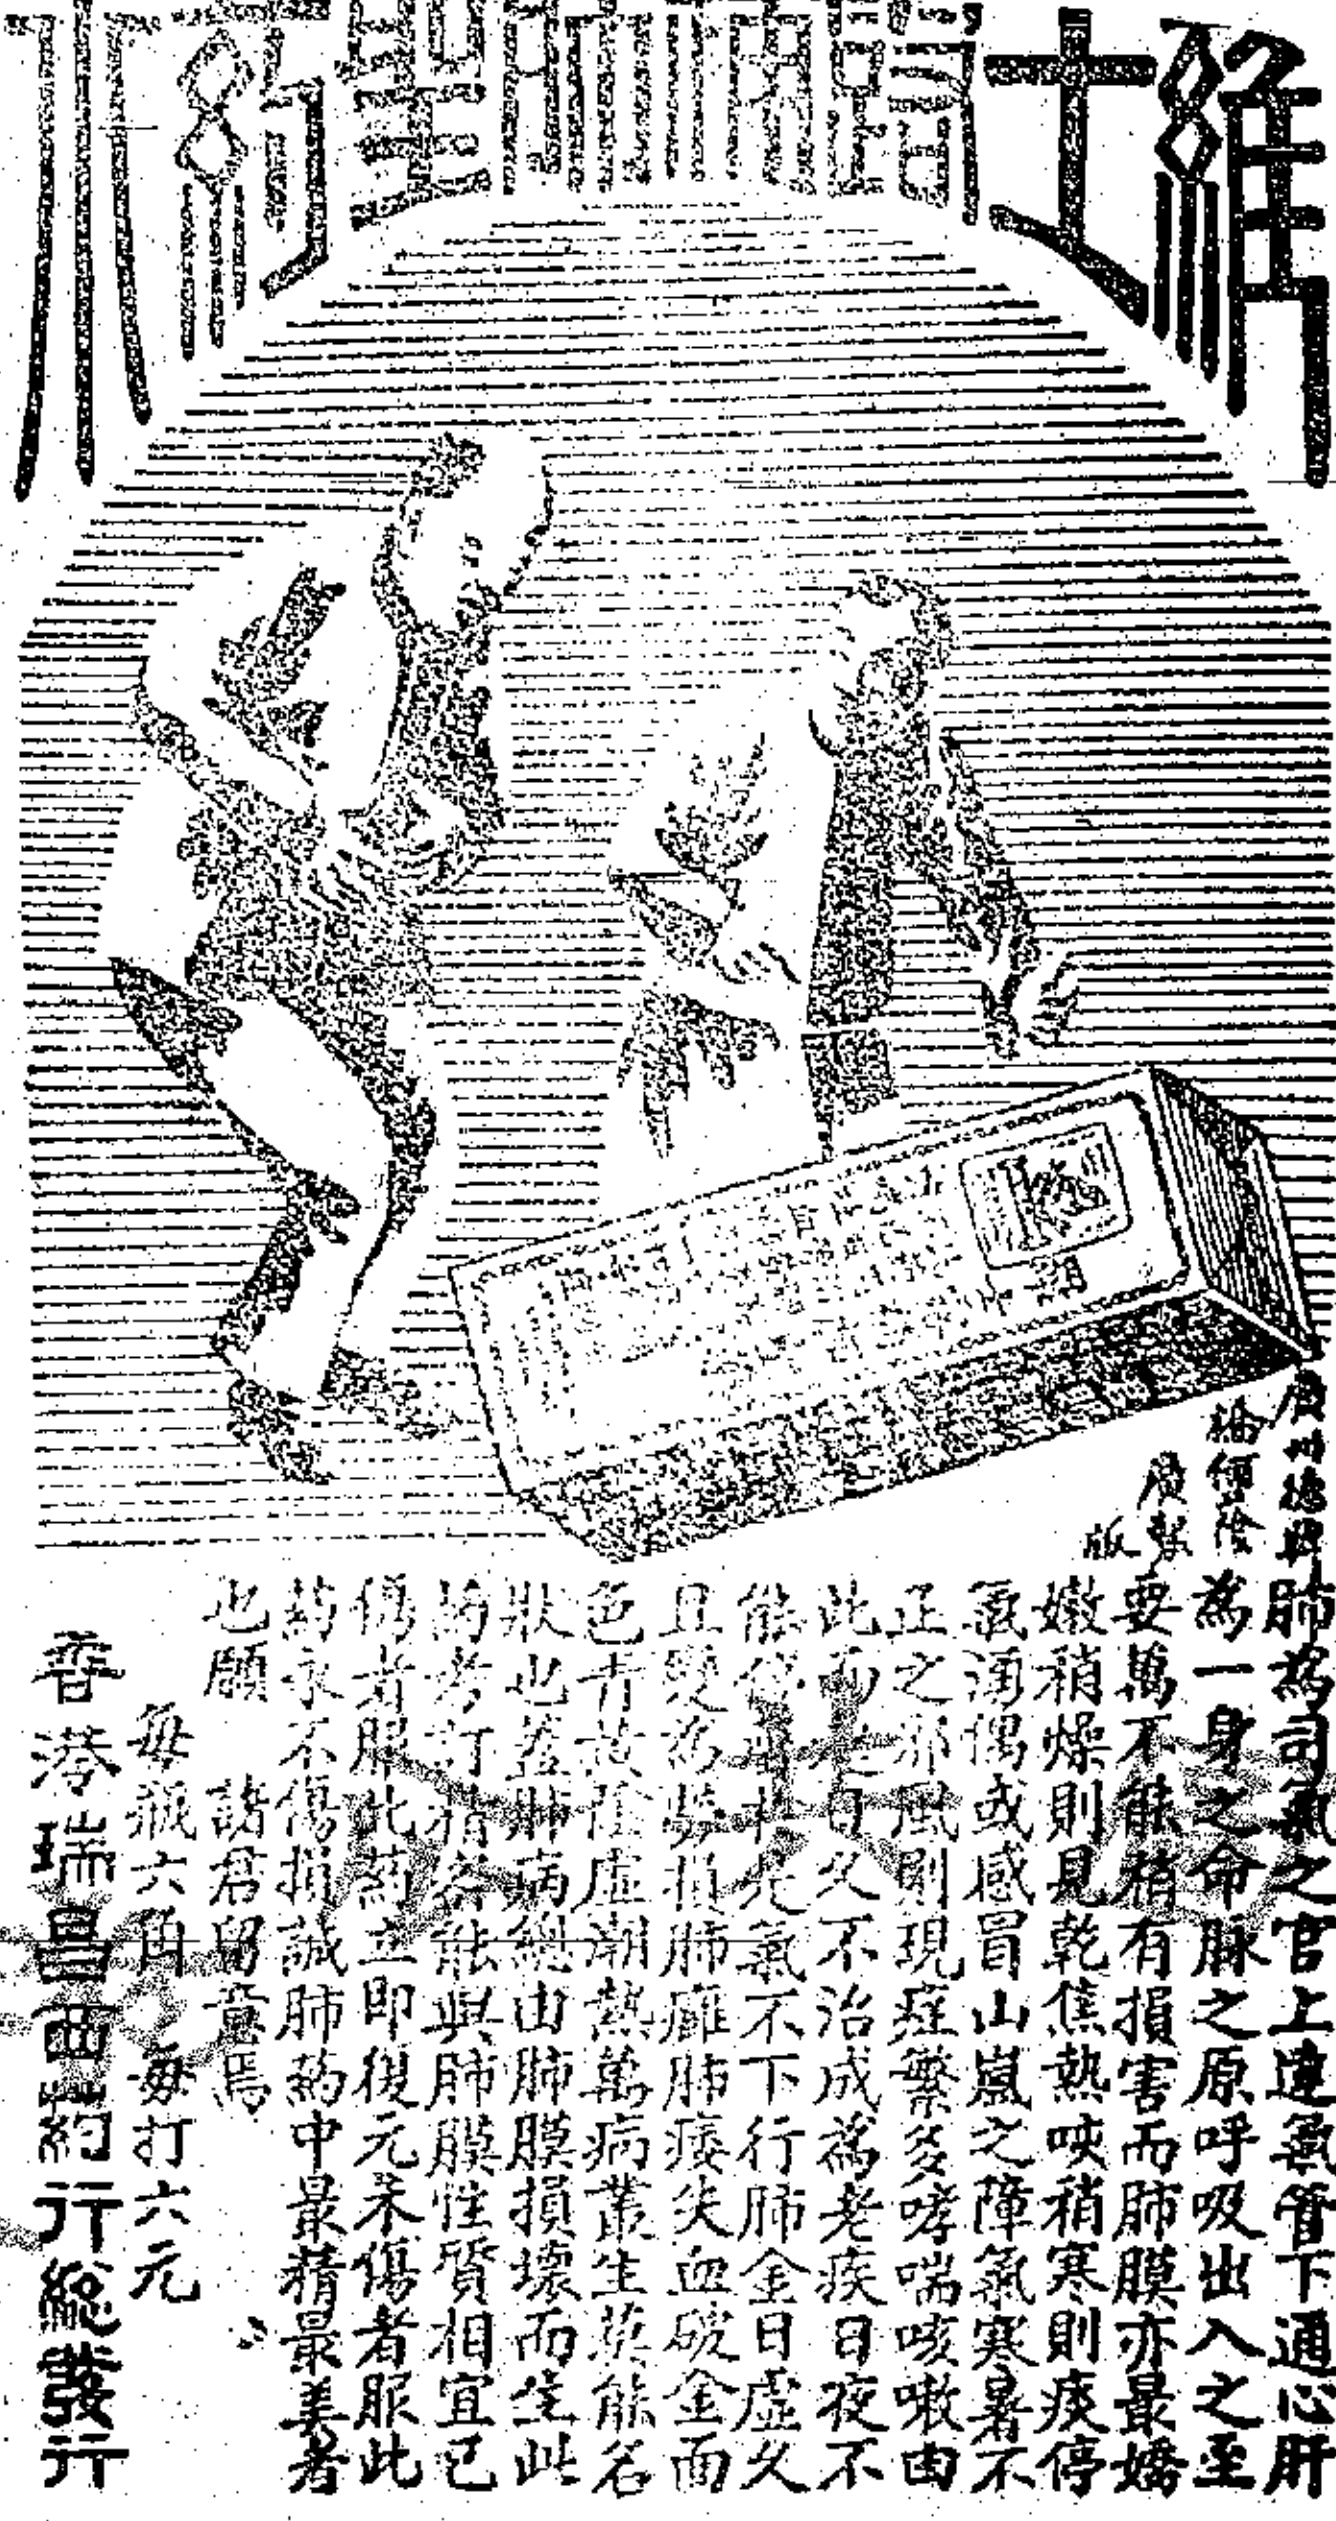 維士?肺聖药水
廣州德興
輪價??
廣製
版
肺為司氣之官上達氣管下通心肝
為一身之命脉之原呼吸出入之至
要萬不能稍有損害而肺膜亦最嬌
嫩稍燥則見乾焦熱咉稍寒則痰停
氣湧偶或感冒山嵐之障氣寒暑不
正之邪風則現症繁多哮喘咳嗽由
此而起日久不治成為老疾日夜不
能停耗老氣不下行肺金日虛久
且變為勞損肺癰肺痿失血破金面
色青黃陰虛潮熱萬病叢生莫能名
狀也蓋肺病總由肺膜損壞而生此
药考訂精各能與肺膜性質相宜已
傷者服此药立即復元未傷者服此
药永不傷損誠肺药中最精最美者
也願 諸君留意焉
每瓶六角 每打六元
香港瑞昌西药行總發行